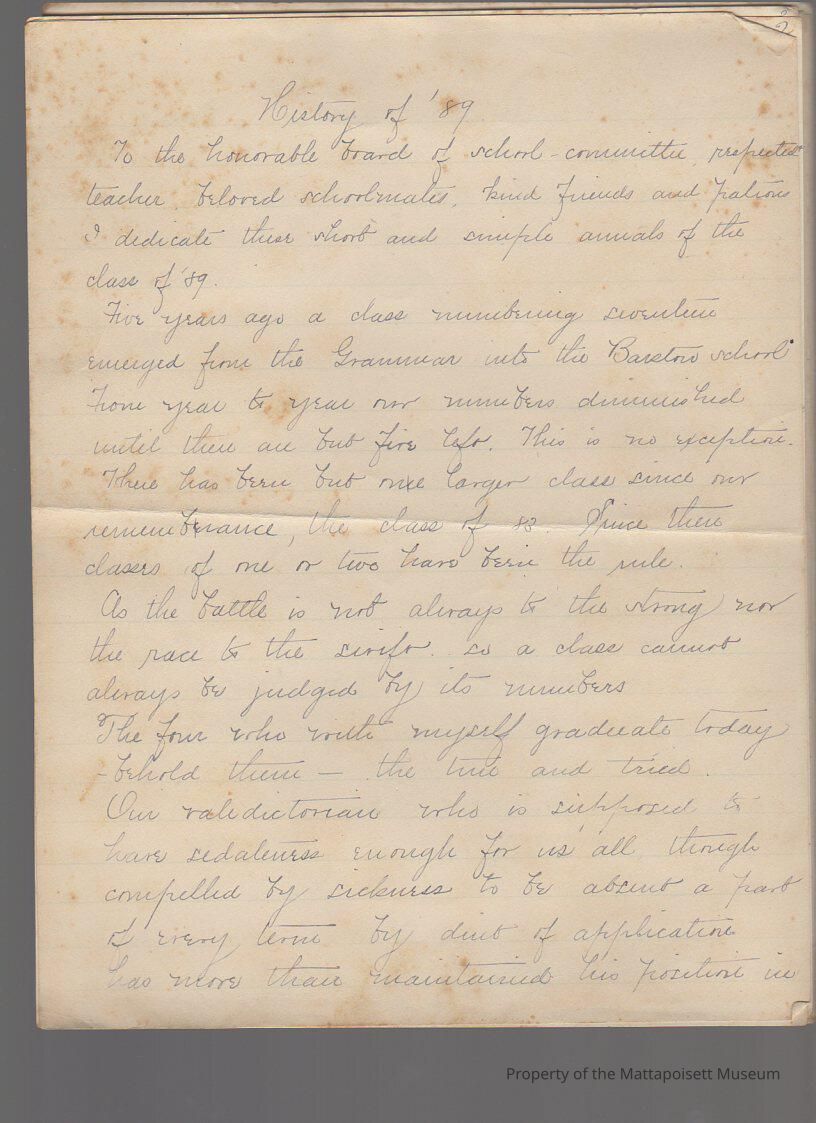 2
History of '89
To the honorable board of school-committee, respected
teacher, beloved schoolmates, kind friends and patrons
I dedicate these short and simple annals of the
class of '89.
Five years ago a class numbering seventeen
emerged from the Grammar into the Barstow school
From year to year our numbers diminished
until there are but five left. This is no exception.
There has been but one larger class since our
rememberance, the class of 83. Since then
classes of one or two have been the rule.
As the battle is not always to the strong nor
the race to the swift. so a class cannot
always be judged by its numbers
The four who with myself graduate today
-behold them — the true and tried.
Our valedictorian who is supposed to
have sedateness enough for us all though
compelled by sickness to be absent a part
of every term by dint of application
has more than maintained his position in
Property of the Mattapoisett Museum